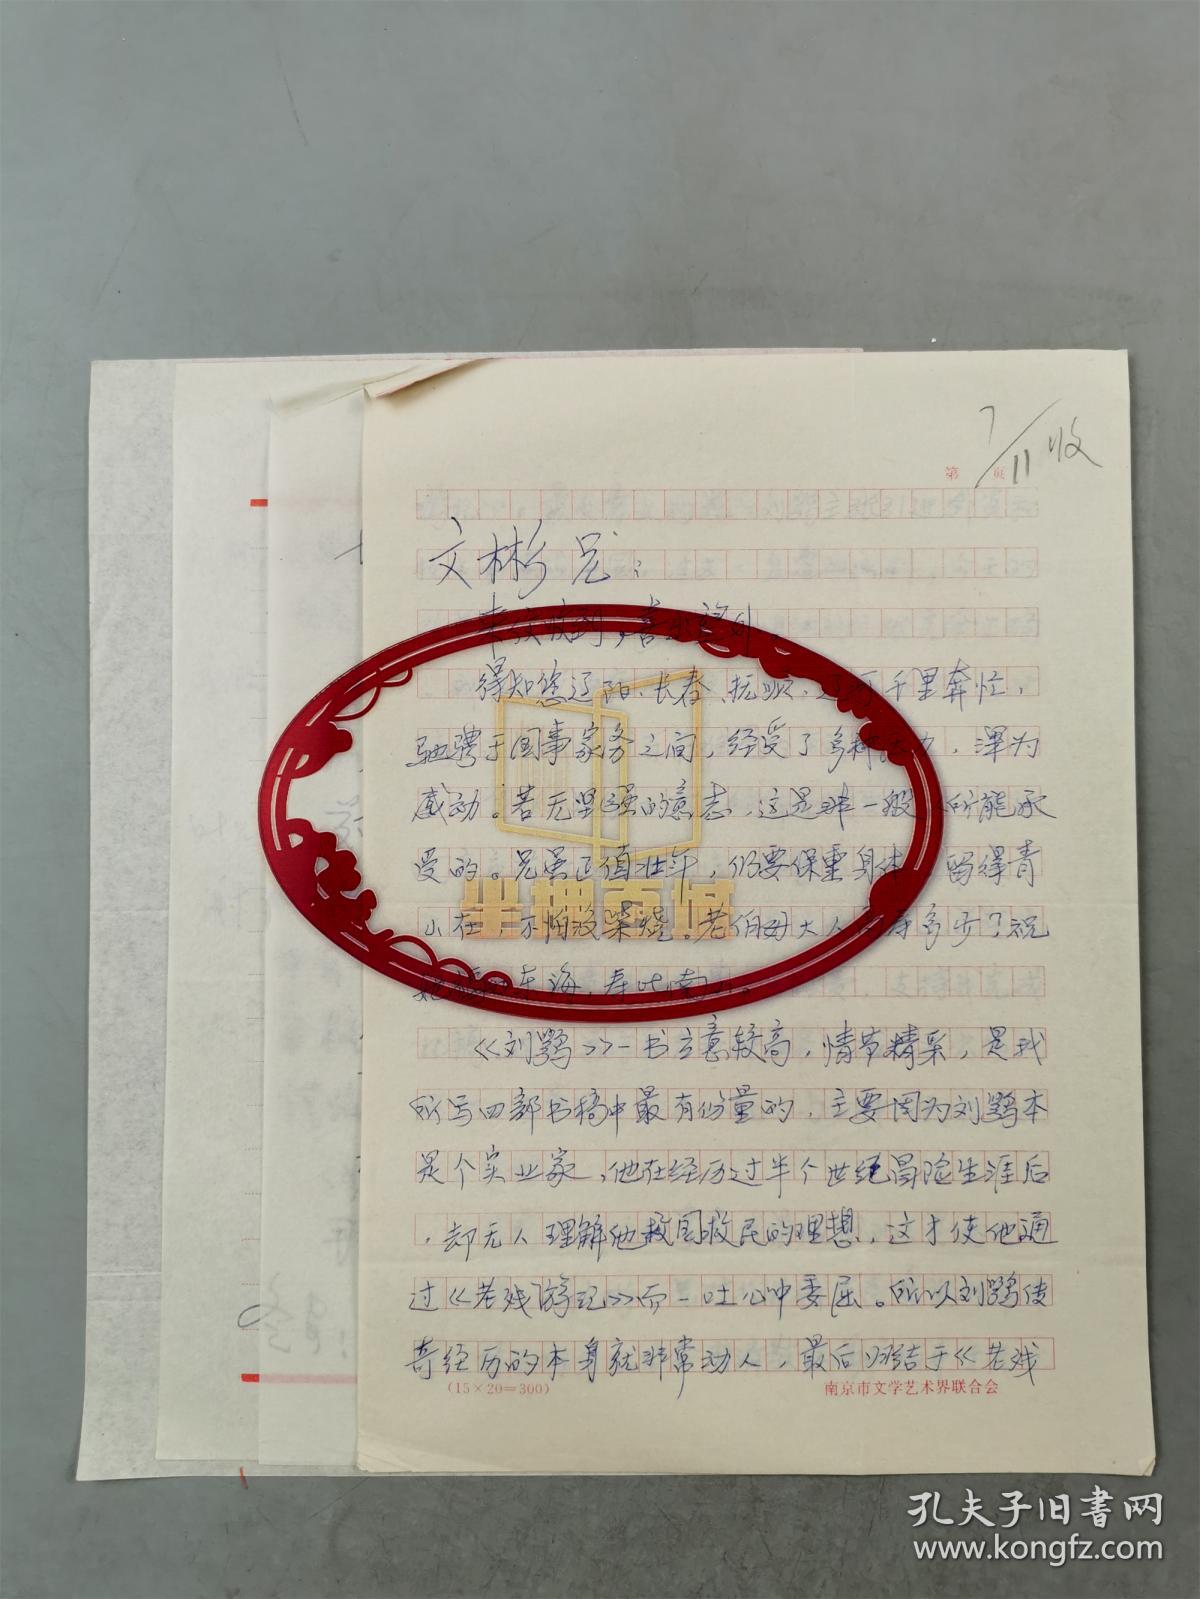 7/11收
第 页
文彬兄：
来信收到，喜出望外。
得知您辽阳、长春、抚顺、辽河千里奔忙，
驰骋于国事家务之间，经受了多种压力，深为
感动。若无坚强的意志，这是非一般 所能承
受的。兄虽正值壮年，仍要保重身体，留得青
山在，不怕没柴烧。老伯母大人高寿多少？祝
她福如东海，寿比南山。
《刘鹗》一书立意较高，情节精采，是我
所写四部书稿中最有份量的，主要因为刘鹗本
是个实业家，他在经历过半个世纪冒险生涯后
，却无人理解他救国救民的理想，这才使他通
过《老残游记》而一吐心中委屈。所以刘鹗传
奇经历的本身就非常动人，最后归结于《老残
(15×20=300)
南京市文学艺术界联合会
孔夫子旧书网
www.kongfz.com